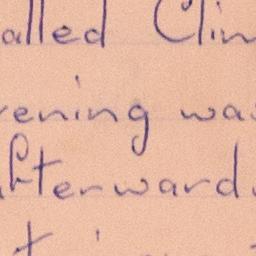 alled Clim
ening was
fterward